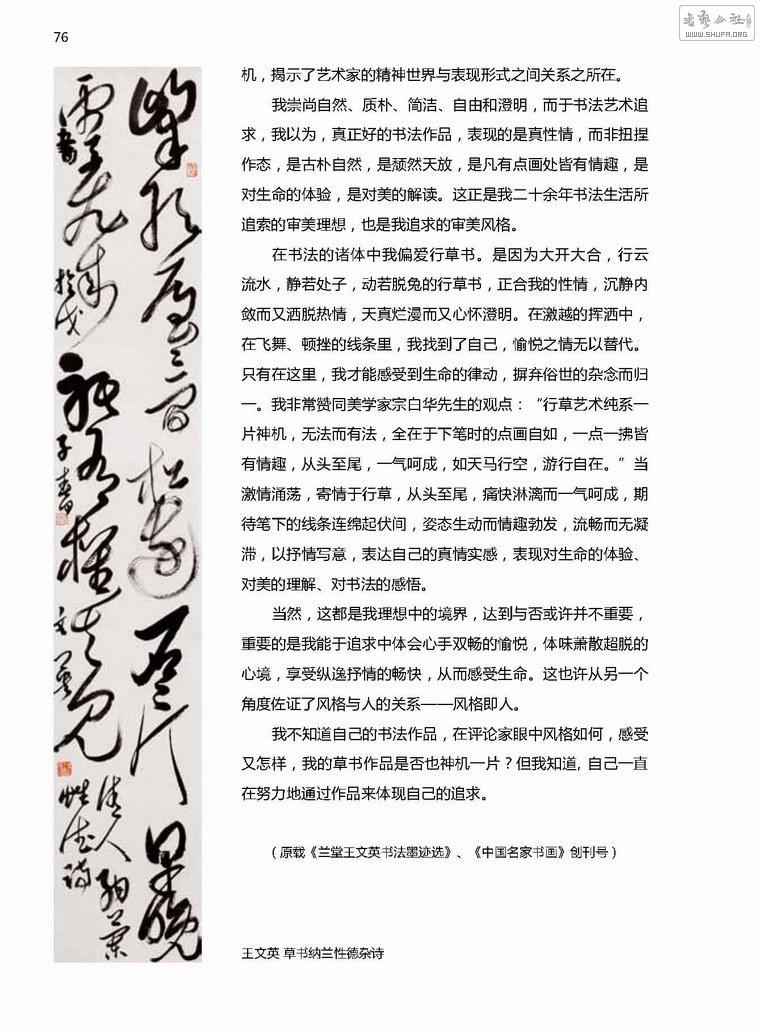 76
WWW.SHUFA.ORG
机，揭示了艺术家的精神世界与表现形式之间关系之所在。
我崇尚自然、质朴、简洁、自由和澄明，而于书法艺术追
求，我以为，真正好的书法作品，表现的是真性情，而非扭捏
作态，是古朴自然，是颓然天放，是凡有点画处皆有情趣，是
对生命的体验，是对美的解读。这正是我二十余年书法生活所
追索的审美理想，也是我追求的审美风格。
在书法的诸体中我偏爱行草书。是因为大开大合，行云
流水，静若处子，动若脱兔的行草书，正合我的性情，沉静内
敛而又洒脱热情，天真烂漫而又心怀澄明。在激越的挥洒中，
在飞舞、顿挫的线条里，我找到了自己，愉悦之情无以替代。
只有在这里，我才能感受到生命的律动，摒弃俗世的杂念而归
一。我非常赞同美学家宗白华先生的观点：“行草艺术纯系一
片神机，无法而有法，全在于下笔时的点画自如，一点一拂皆
有情趣，从头至尾，一气呵成，如天马行空，游行自在。”当
激情涌荡，寄情于行草，从头至尾，痛快淋漓而一气呵成，期
待笔下的线条连绵起伏间，姿态生动而情趣勃发，流畅而无凝
滞，以抒情写意，表达自己的真情实感，表现对生命的体验、
对美的理解、对书法的感悟。
当然，这都是我理想中的境界，达到与否或许并不重要，
重要的是我能于追求中体会心手双畅的愉悦，体味萧散超脱的
心境，享受纵逸抒情的畅快，从而感受生命。这也许从另一个
角度佐证了风格与人的关系——风格即人。
我不知道自己的书法作品，在评论家眼中风格如何，感受
又怎样，我的草书作品是否也神机一片？但我知道，自己一直
在努力地通过作品来体现自己的追求。
（原载《兰堂王文英书法墨迹选》、《中国名家书画》创刊号）
王文英 草书纳兰性德杂诗